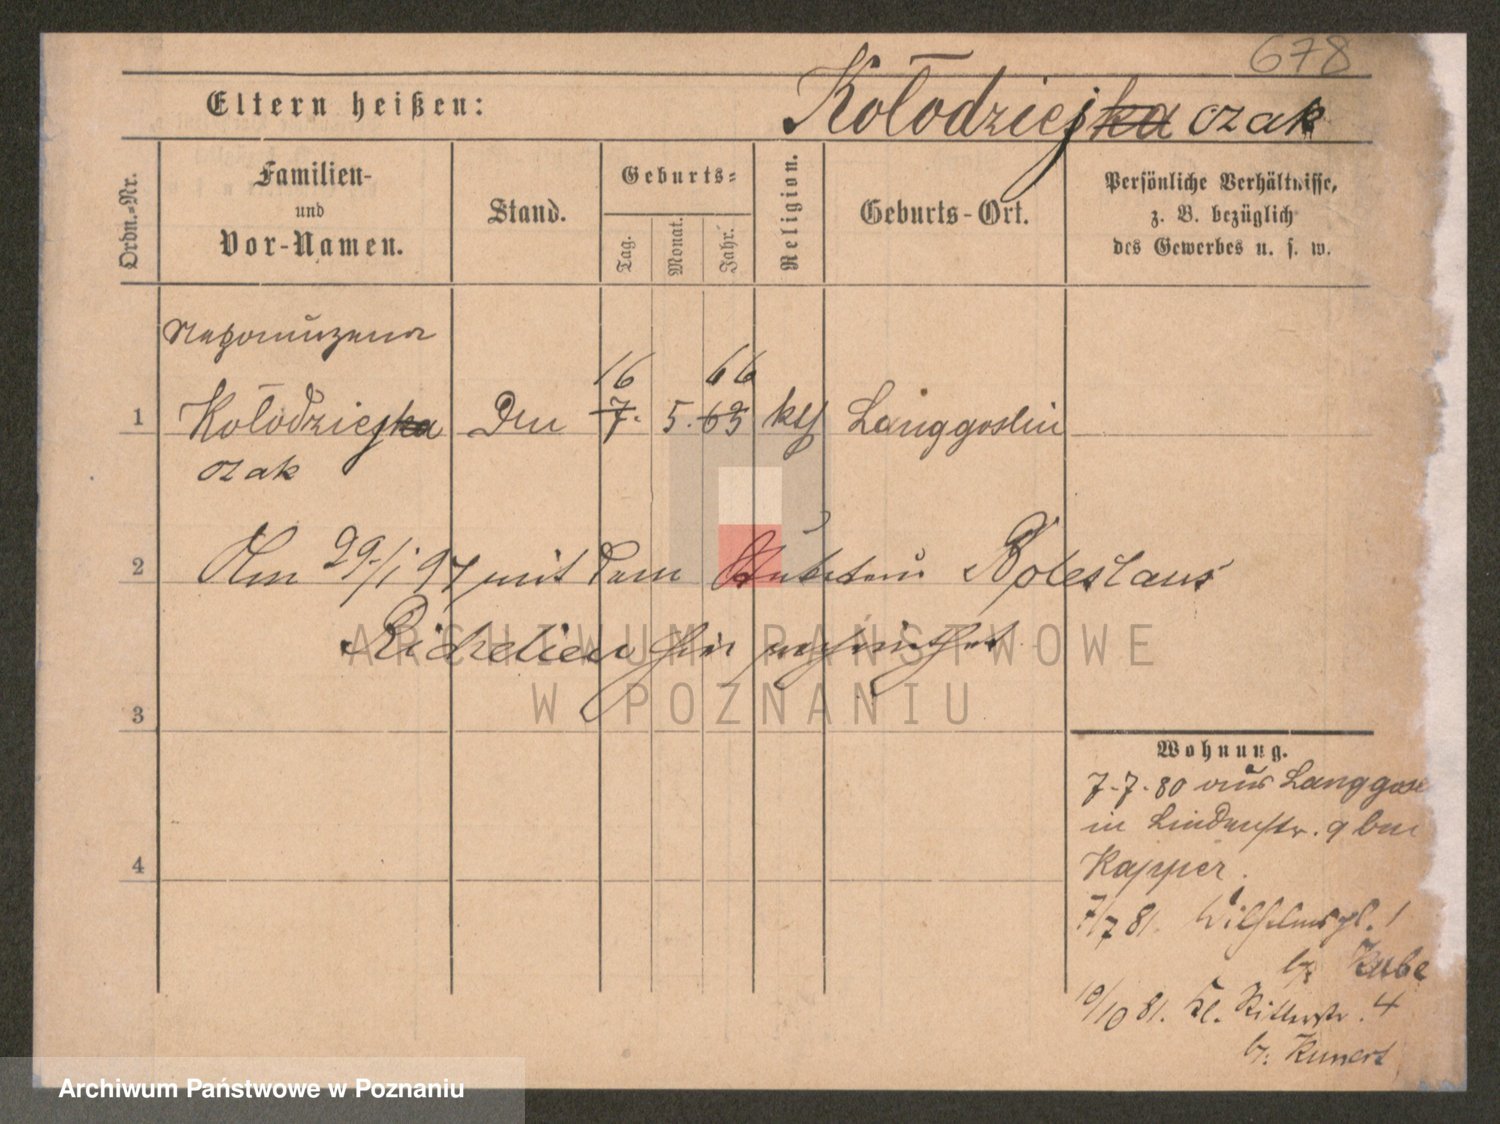 678
Eltern heißen:
Kołodziejka czak
Ordn.-Nr.
Familien-
und
Vor-Namen.
Stand.
Geburts-
Tag.
Monat.
Jahr.
Religion.
Geburts-Ort.
Persönliche Verhältnisse,
z. B. bezüglich
des Gewerbes u. s. w.
Nepomuzena
16 66
1 Kołodziejka 7. 5. 65 kth Langgoslin
czak
2 Am 29/1 97 mit dem Boleslaus
hier
ARCHIWUM PAŃSTWOWE
W POZNANIU
3
Wohnung.
7-7-80 aus Langgosl
in Lindenstr. 9 bei
4
Kapper.
7/7 81. Wilhelmspl. 1
b. Kube
10/10 81. Kl. Ritterstr. 4
b. Kunert
Archiwum Państwowe w Poznaniu